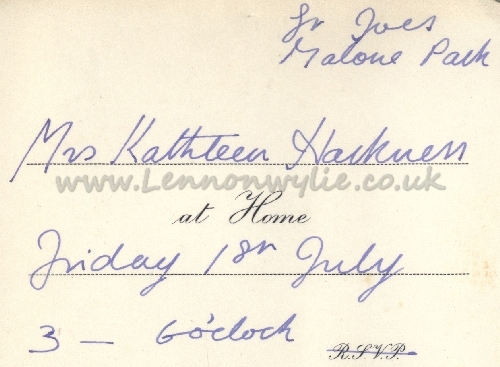 St Ives
Malone Park
Mrs Kathleen Harkness
www.Lennonwylie.co.uk
at Home
Friday 18th July
3 — 6 o'clock
R.S.V.P.